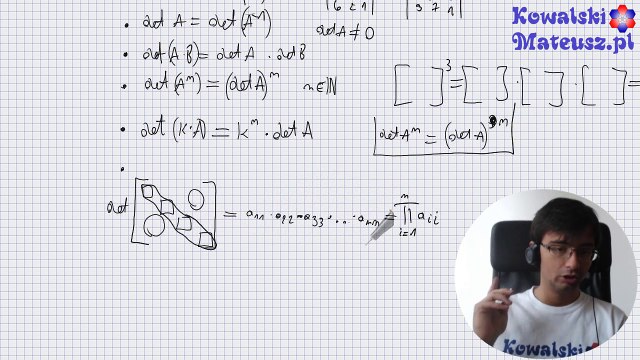 |6 2 1| |9 7 1|
• det A = det(Aᵀ)
det A ≠ 0
Kowalski
Mateusz.pl
• det(A·B) = det A . det B
• det(Aᵐ) = (det A)ᵐ m ∈ ℕ
[ ]³ = [ ] · [ ] · [ ] =
• det(K·A) = Kᵐ · det A
det Aᵐ = (det A)ᵐ
det [ ] = a₁₁ · a₂₂ · a₃₃ · ... · aₙₙ = ∏ⁿᵢ₌₁ aᵢᵢ
Kowalski